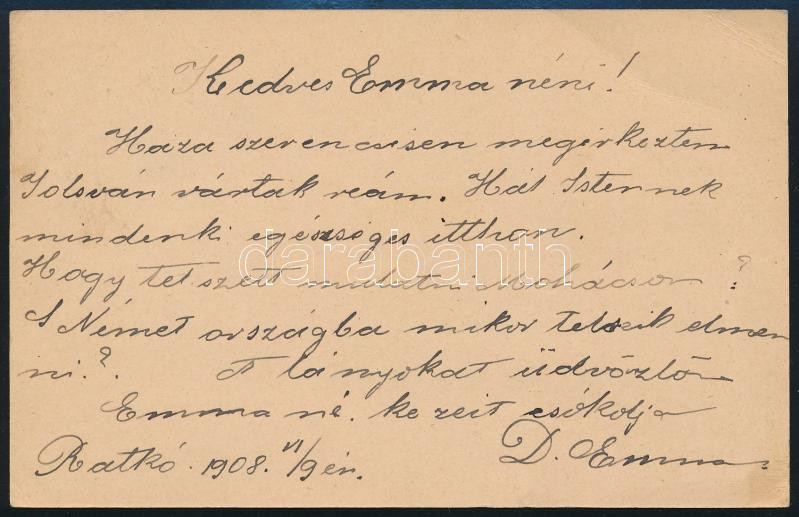 Kedves Emma néni!
Haza szerencsésen megérkeztem
Jolsván vártak reám. Hál Istennek
mindenki egészséges itthon.
Hogy tetszett mulatni Mohácson?
S Német országba mikor tetszik elmen
ni.? A lányokat üdvözlöm
Emma né. kezeit csókolja
Ratkó 1908. VI/9én. D. Emma
darabanth